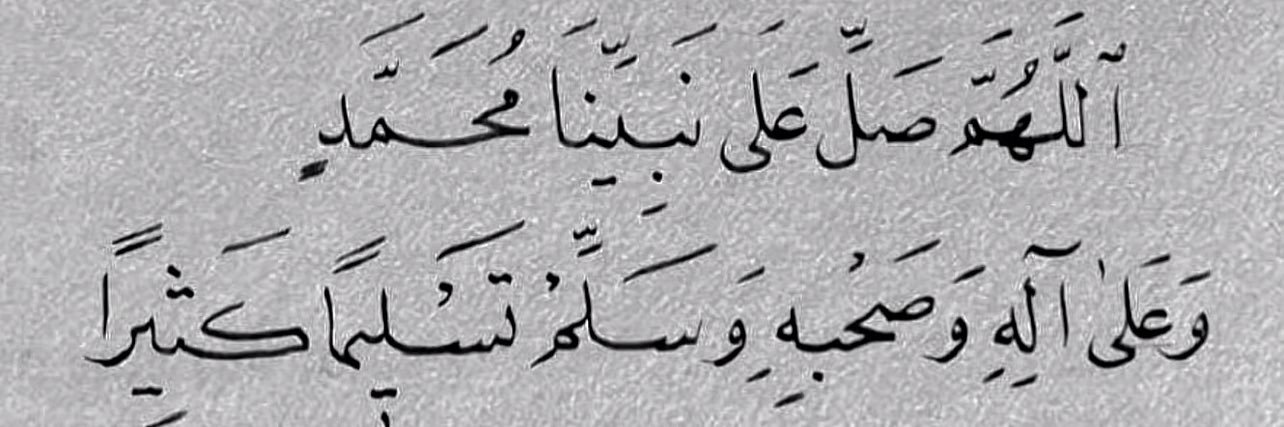 ٱللَّهُمَّ صَلِّ عَلَى نَبِيِّنَا مُحَمَّدٍ
وَعَلىٰ آلِهِ وَصَحْبِهِ وَسَلِّمْ تَسْلِيمًا كَثِيرًا